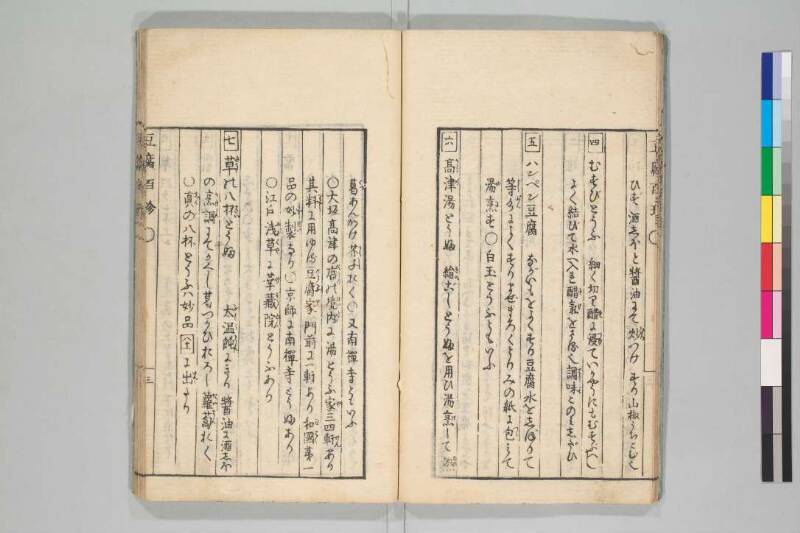 ひず 酒しほと醤油にて炒つけ すり山椒うちこむ也
四 むすびとうふ 細く切り醋に浸ていかやうにもむすぶべし
よく結びて水へ入れ醋氣をさる也 調味このミしだひ
五 ハンペン豆腐 ながいもをよくすり豆腐水をしぼりて
等分よくすりまぜまろくとりみの紙に包ミて
湯烹す ○白玉とうふともいふ
六 高津湯とうふ 絹ごしとうふを用ひ湯烹して 熱
葛あんかけ 芥子おく ○又南禅寺ともいふ
○大坂高津の廟の境内に湯とうふ家三四軒あり
其料に用ゆる豆腐家 門前に一軒あり 和國第一
品の妙製なり ○京師に南禅寺とうふあり
○江戸浅草に華蔵院とうふあり
七 草の八杯とうふ 太温飩にきり 醤油に酒しほ
の烹調にて 葛つかひおろし蘿蔔おく
○真の八杯とうふハ妙品に出たり
豆腐百珍
三